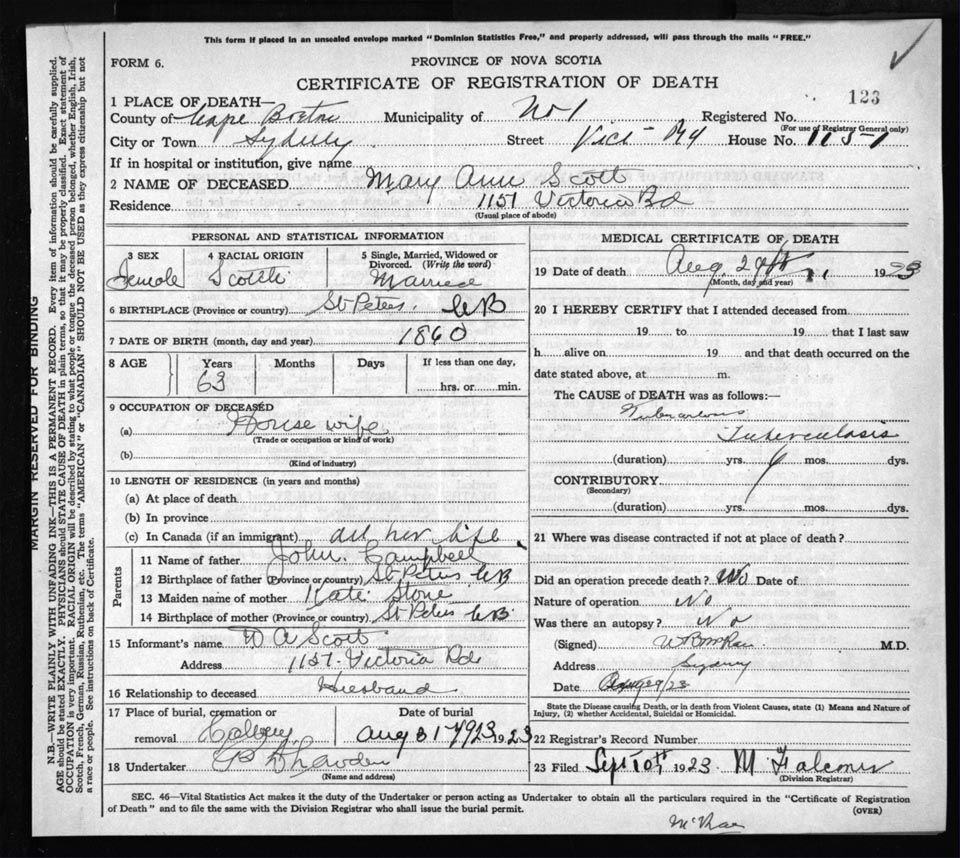 This form if placed in an unsealed envelope marked "Dominion Statistics Free," and properly addressed, will pass through the mails "FREE."
FORM 6.
PROVINCE OF NOVA SCOTIA
CERTIFICATE OF REGISTRATION OF DEATH
123
1 PLACE OF DEATH—
County of Cape Breton Municipality of No 1 Registered No.
(For use of Registrar General only)
City or Town Sydney Street Vict Rd House No. 1151
If in hospital or institution, give name
2 NAME OF DECEASED Mary Ann Scott
Residence 1151 Victoria Rd
(Usual place of abode)
PERSONAL AND STATISTICAL INFORMATION
3 SEX 4 RACIAL ORIGIN 5 Single, Married, Widowed or Divorced. (Write the word)
Female Scotch Married
6 BIRTHPLACE (Province or country) St Peters. CB
7 DATE OF BIRTH (month, day and year) 1860
8 AGE Years Months Days If less than one day,
63 hrs. or min.
9 OCCUPATION OF DECEASED
(a) House wife
(Trade or occupation or kind of work)
(b)
(Kind of industry)
10 LENGTH OF RESIDENCE (in years and months)
(a) At place of death
(b) In province
(c) In Canada (if an immigrant) all her life
Parents
11 Name of father John Campbell
12 Birthplace of father (Province or country) St Peters CB
13 Maiden name of mother Kate Stone
14 Birthplace of mother (Province or country) St Peters CB
15 Informant's name A Scott
Address 1151 Victoria Rd
16 Relationship to deceased Husband
17 Place of burial, cremation or removal Date of burial
Aug 31 1923 1923
18 Undertaker
(Name and address)
MEDICAL CERTIFICATE OF DEATH
19 Date of death Aug. 29th 1923
(Month, day and year)
20 I HEREBY CERTIFY that I attended deceased from
19 to 19 that I last saw
h alive on 19 and that death occurred on the
date stated above, at m.
The CAUSE of DEATH was as follows:—
Tuberculosis
(duration) yrs. 6 mos. dys.
CONTRIBUTORY
(Secondary)
(duration) yrs. mos. dys.
21 Where was disease contracted if not at place of death?
Did an operation precede death? No Date of
Nature of operation No
Was there an autopsy? No
(Signed) M.D.
Address Sydney
Date Aug 29/23
State the Disease causing Death, or in death from Violent Causes, state (1) Means and Nature of
Injury, (2) whether Accidental, Suicidal or Homicidal.
22 Registrar's Record Number
23 Filed Sept 10th 1923 M Falconer
(Division Registrar)
SEC. 46—Vital Statistics Act makes it the duty of the Undertaker or person acting as Undertaker to obtain all the particulars required in the "Certificate of Registration
of Death" and to file the same with the Division Registrar who shall issue the burial permit.
(OVER)
McRae
MARGIN RESERVED FOR BINDING
N.B.—WRITE PLAINLY WITH UNFADING INK—THIS IS A PERMANENT RECORD. Every item of information should be carefully supplied.
AGE should be stated EXACTLY. PHYSICIANS should STATE CAUSE OF DEATH in plain terms, so that it may be properly classified. Exact statement of
OCCUPATION is very important. RACIAL ORIGIN will be described by stating to what people or tongue the deceased person belonged, whether English, Irish,
Scotch, French, German, Russian, Ruthenian, etc. The terms "AMERICAN" or "CANADIAN" SHOULD NOT BE USED as they express citizenship but not
a race or people. See instructions on back of Certificate.